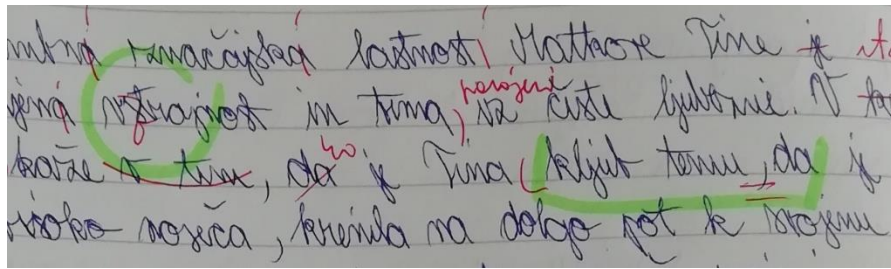 značajska lastnost Matkove Tine je
vztrajnost in trma, porojeni iz čiste ljubezni. V
kaže v tem, da ko je Tina kljub temu, da je
visoko noseča, krenila na dolgo pot k svojemu